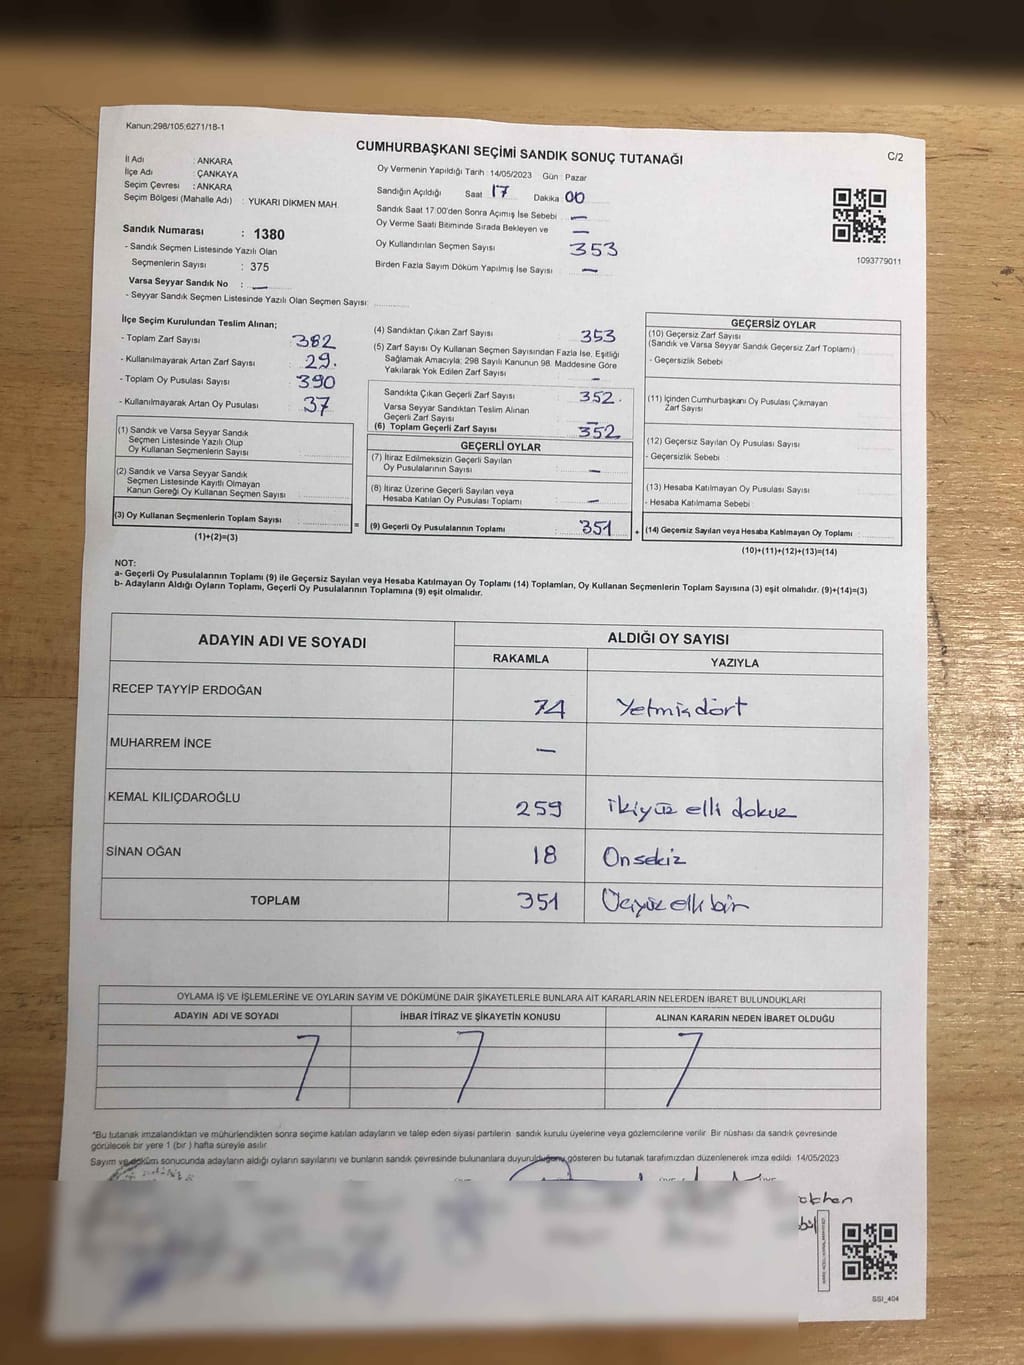 Kanun;298/105;6271/18-1
CUMHURBAŞKANI SEÇİMİ SANDIK SONUÇ TUTANAĞI
C/2
İl Adı : ANKARA
İlçe Adı : ÇANKAYA
Seçim Çevresi : ANKARA
Seçim Bölgesi (Mahalle Adı) : YUKARI DİKMEN MAH.
Oy Vermenin Yapıldığı Tarih : 14/05/2023 Gün : Pazar
Sandığın Açıldığı Saat 17 Dakika 00
Sandık Saat 17:00'den Sonra Açımış İse Sebebi : —
Oy Verme Saati Bitiminde Sırada Bekleyen ve —
Oy Kullandırılan Seçmen Sayısı 353
Birden Fazla Sayım Döküm Yapılmış İse Sayısı : —
1093779011
Sandık Numarası : 1380
- Sandık Seçmen Listesinde Yazılı Olan
Seçmenlerin Sayısı : 375
Varsa Seyyar Sandık No : —
- Seyyar Sandık Seçmen Listesinde Yazılı Olan Seçmen Sayısı:
İlçe Seçim Kurulundan Teslim Alınan;
- Toplam Zarf Sayısı : 382
- Kullanılmayarak Artan Zarf Sayısı : 29.
- Toplam Oy Pusulası Sayısı : 390
- Kullanılmayarak Artan Oy Pusulası : 37
(1) Sandık ve Varsa Seyyar Sandık
Seçmen Listesinde Yazılı Olup
Oy Kullanan Seçmenlerin Sayısı :
(2) Sandık ve Varsa Seyyar Sandık
Seçmen Listesinde Kayıtlı Olmayan
Kanun Gereği Oy Kullanan Seçmen Sayısı :
(3) Oy Kullanan Seçmenlerin Toplam Sayısı : =
(1)+(2)=(3)
(4) Sandıktan Çıkan Zarf Sayısı : 353
(5) Zarf Sayısı Oy Kullanan Seçmen Sayısından Fazla İse, Eşitliği
Sağlamak Amacıyla; 298 Sayılı Kanunun 98. Maddesine Göre
Yakılarak Yok Edilen Zarf Sayısı : —
Sandıkta Çıkan Geçerli Zarf Sayısı : 352.
Varsa Seyyar Sandıktan Teslim Alınan
Geçerli Zarf Sayısı : —
(6) Toplam Geçerli Zarf Sayısı : 352
GEÇERLİ OYLAR
(7) İtiraz Edilmeksizin Geçerli Sayılan
Oy Pusulalarının Sayısı : —
(8) İtiraz Üzerine Geçerli Sayılan veya
Hesaba Katılan Oy Pusulası Toplamı : —
(9) Geçerli Oy Pusulalarının Toplamı : 351 +
GEÇERSİZ OYLAR
(10) Geçersiz Zarf Sayısı
(Sandık ve Varsa Seyyar Sandık Geçersiz Zarf Toplamı) :
- Geçersizlik Sebebi :
(11) İçinden Cumhurbaşkanı Oy Pusulası Çıkmayan
Zarf Sayısı :
(12) Geçersiz Sayılan Oy Pusulası Sayısı :
- Geçersizlik Sebebi :
(13) Hesaba Katılmayan Oy Pusulası Sayısı :
- Hesaba Katılmama Sebebi :
(14) Geçersiz Sayılan veya Hesaba Katılmayan Oy Toplamı :
(10)+(11)+(12)+(13)=(14)
NOT:
a- Geçerli Oy Pusulalarının Toplamı (9) ile Geçersiz Sayılan veya Hesaba Katılmayan Oy Toplamı (14) Toplamları, Oy Kullanan Seçmenlerin Toplam Sayısına (3) eşit olmalıdır. (9)+(14)=(3)
b- Adayların Aldığı Oyların Toplamı, Geçerli Oy Pusulalarının Toplamına (9) eşit olmalıdır.
ADAYIN ADI VE SOYADI ALDIĞI OY SAYISI
RAKAMLA YAZIYLA
RECEP TAYYİP ERDOĞAN 74 Yetmişdört
MUHARREM İNCE —
KEMAL KILIÇDAROĞLU 259 ikiyüz elli dokuz
SİNAN OĞAN 18 Onsekiz
TOPLAM 351 Üçyüz elli bir
OYLAMA İŞ VE İŞLEMLERİNE VE OYLARIN SAYIM VE DÖKÜMÜNE DAİR ŞİKAYETLERLE BUNLARA AİT KARARLARIN NELERDEN İBARET BULUNDUKLARI
ADAYIN ADI VE SOYADI İHBAR İTİRAZ VE ŞİKAYETİN KONUSU ALINAN KARARIN NEDEN İBARET OLDUĞU
*Bu tutanak imzalandıktan ve mühürlendikten sonra seçime katılan adayların ve talep eden siyasi partilerin sandık kurulu üyelerine veya gözlemcilerine verilir. Bir nüshası da sandık çevresinde
görülecek bir yere 1 (bir ) hafta süreyle asılır.
Sayım ve döküm sonucunda adayların aldığı oyların sayılarını ve bunların sandık çevresinde bulunanlara duyurulduğunu gösteren bu tutanak tarafımızdan düzenlenerek imza edildi. 14/05/2023
SSI_404